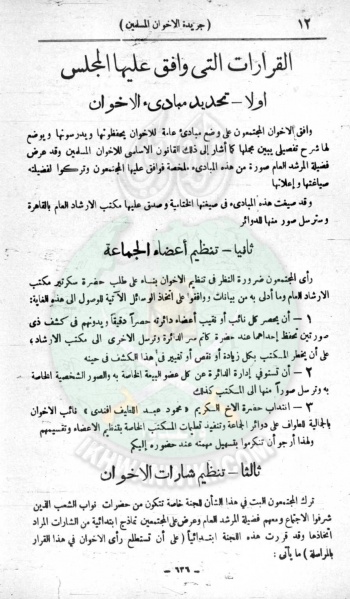 ١٢ ( جريدة الاخوان المسلمين )
القرارات التى وافق عليها المجلس
اولا – تحديد مبادىء الاخوان
وافق الاخوان المجتمعون على وضع مبادئ عامة للاخوان يحفظونها ويدرسونها ويوضع
لها شرح تفصيلى يبين مجملها كما أشار إلى ذلك القانون الاساسى للاخوان المسلمين وقد عرض
فضيلة المرشد العام صورة من هذه المبادىء ملخصة فوافق عليها المجتمعون وتركوا لفضيلته
صياغتها وإعلانها
وقد صيغت هذه المبادىء فى صيغتها الختامية وصدق عليها مكتب الارشاد العام بالقاهرة
وسترسل صور منها للدوائر
ثانيا – تنظيم أعضاء الجماعة
رأى المجتمعون ضرورة النظر فى تنظيم الاخوان بناء على طلب حضرة سكرتير مكتب
الارشاد العام وما أدلى به من بيانات ووافقوا على اتخاذ الوسائل الآتية للوصول الى هذه الغاية:
١ – أن يحصر كل نائب أو نقيب أعضاء دائرته حصراً دقيقاً ويدونهم فى كشف ذى
صورتين تحفظ إحداهما عند حضرة كاتم سر الدائرة وترسل الاخرى الى مكتب الارشاد ،
على أن يخطر المكتب بكل زيادة أو نقص أو تغيير فى هذا الكشف فى حينه
٢ – أن تستوفى إدارة الدائرة عن كل عضو البيعة الخاصة به والصور الشخصية الخاصة
به وترسل صوراً منها الى المكتب كذلك
٣ – انتداب حضرة الاخ الكريم « محمود عبد اللطيف افندى » نائب الاخوان
بالجمالية للطواف على دوائر الجماعة وتنفيذ تعليمات المكتب الخاصة بتنظيم الاعضاء وتقسيمهم
ولهذا أرجو أن تتكرموا بتسهيل مهمته عند حضوره إليكم
ثالثا – تنظيم شارات الاخوان
ترك المجتمعون البت فى هذا الشأن للجنة خاصة تتكون من حضرات نواب الشعب الذين
شرفوا الاجتماع ومعهم فضيلة المرشد العام وعرض على المجتمعين نماذج ابتدائية من الشارات المراد
اتخاذها وقد قررت هذه اللجنة ابتدائياً ( على أن تستطلع رأى الاخوان فى هذا القرار
بالمراسلة ) ما يأتى :
– ٦٣٦ –